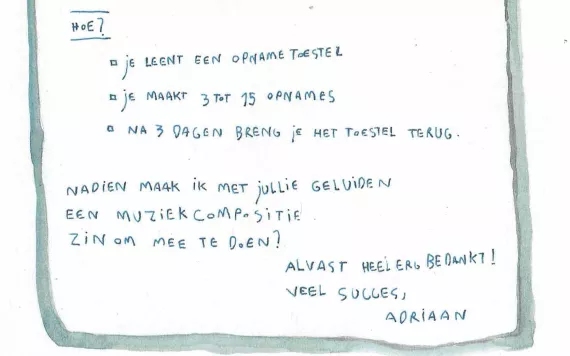 HOE?
▫ je LEENT EEN OPNAME TOESTEL
▫ je MAAKT 3 TOT 15 OPNAMES
▫ NA 3 DAGEN BRENG je HET TOESTEL TERUG.
NADIEN MAAK IK MET jULLIE GELUIDEN
EEN MUZIEKCOMPOSITIE.
ZIN OM MEE TE DOEN?
ALVAST HEEL ERG BEDANKT!
VEEL SUCCES,
ADRIAAN